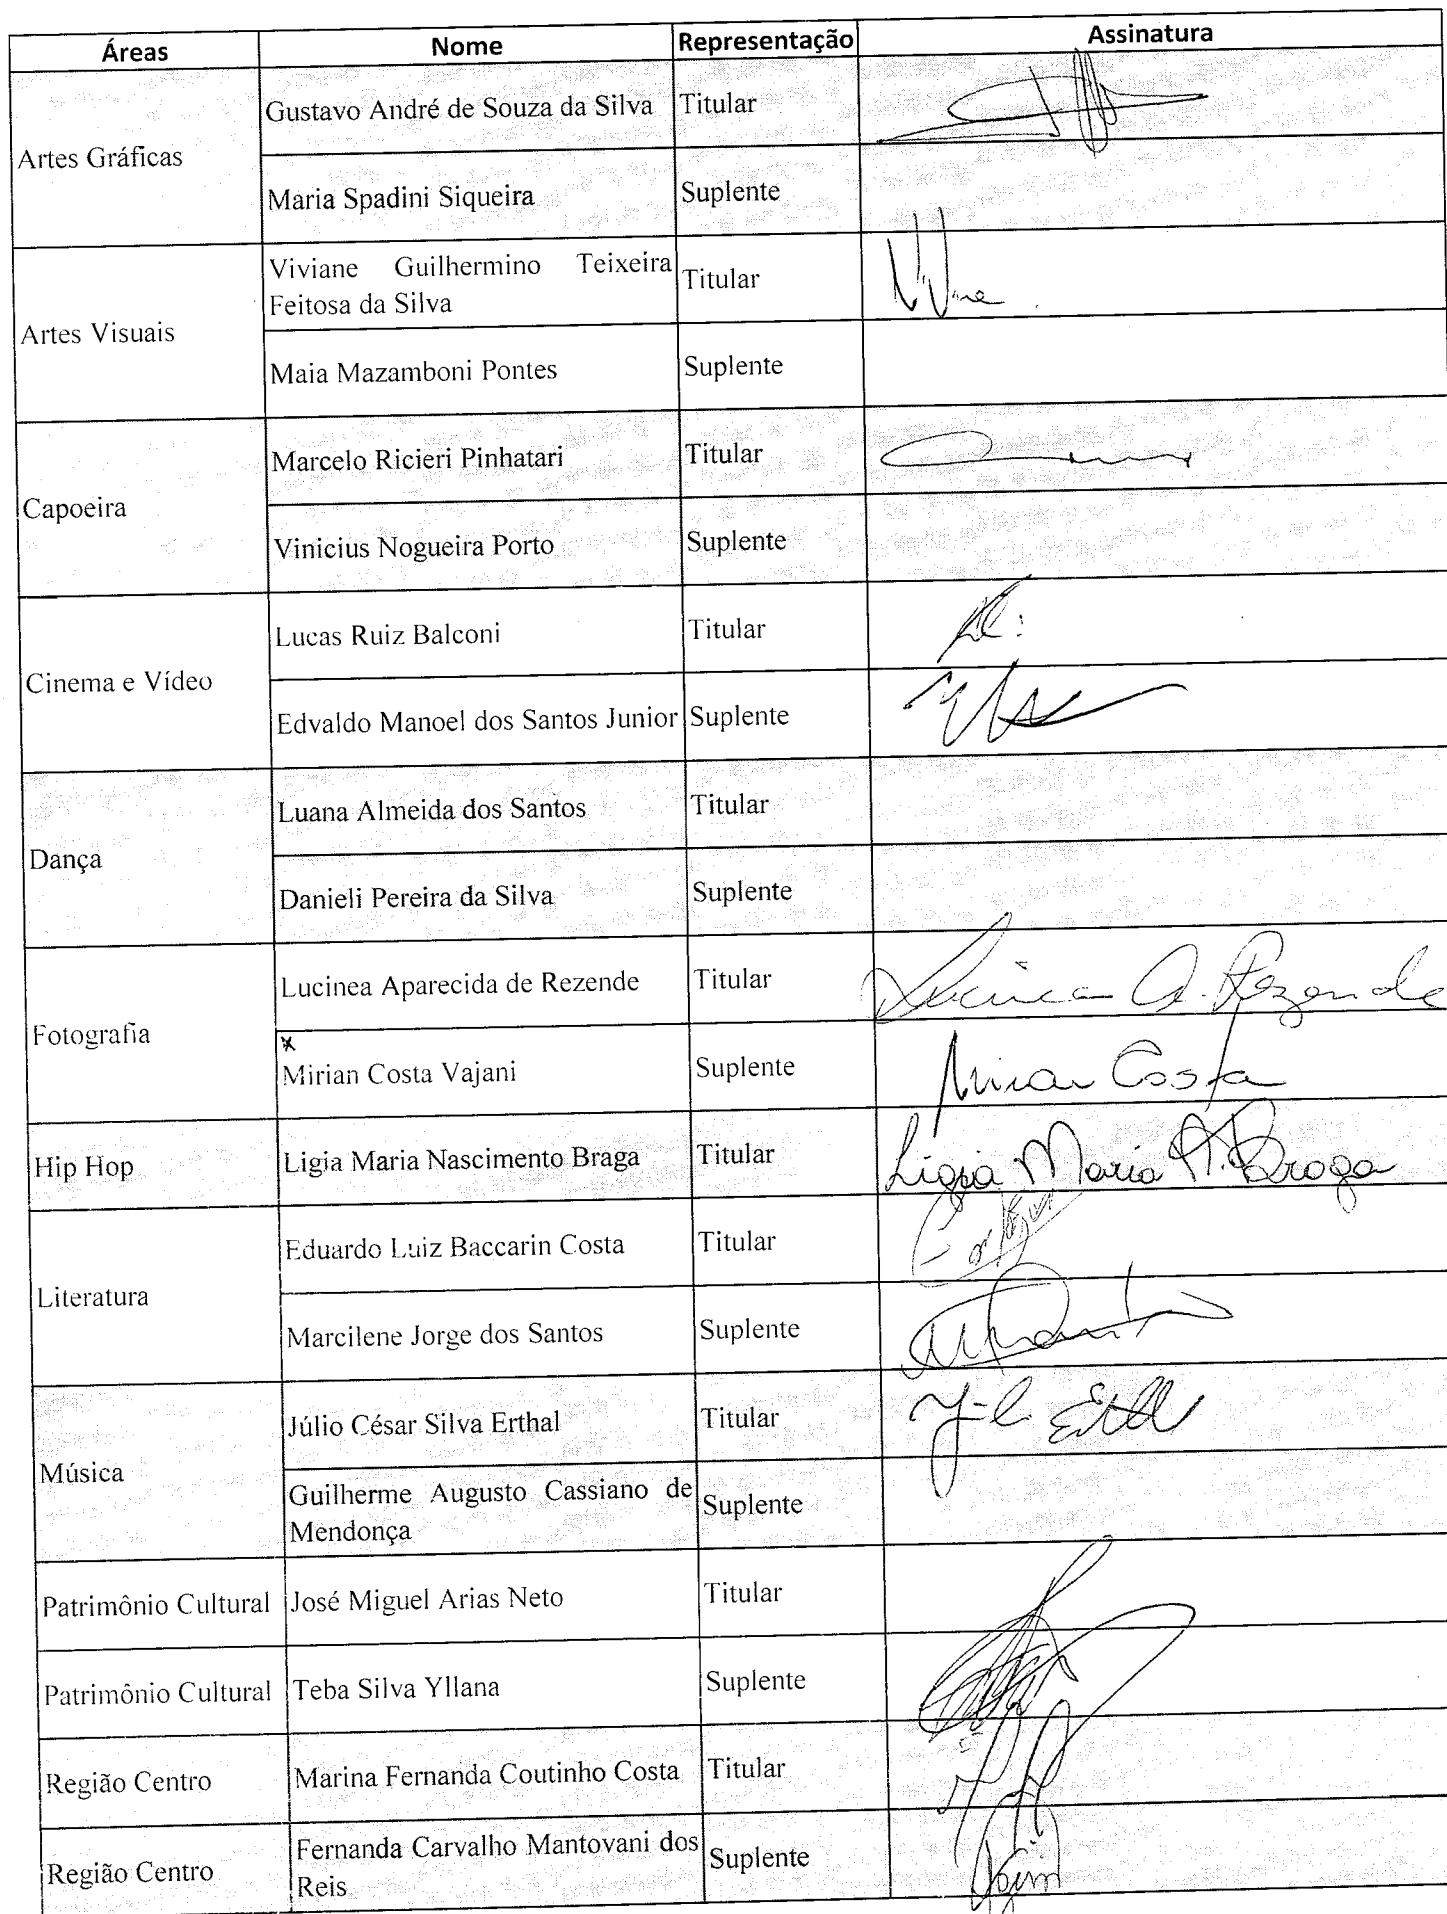 Áreas Nome Representação Assinatura
Artes Gráficas
Gustavo André de Souza da Silva Titular
Maria Spadini Siqueira Suplente
Artes Visuais
Viviane Guilhermino Teixeira
Feitosa da Silva
Titular
Maia Mazamboni Pontes Suplente
Capoeira
Marcelo Ricieri Pinhatari Titular
Vinicius Nogueira Porto Suplente
Cinema e Vídeo
Lucas Ruiz Balconi Titular
Edvaldo Manoel dos Santos Junior Suplente
Dança
Luana Almeida dos Santos Titular
Danieli Pereira da Silva Suplente
Fotografia
Lucinea Aparecida de Rezende Titular Lucinea A. Rezende
Mirian Costa Vajani Suplente Mirian Costa
Hip Hop Ligia Maria Nascimento Braga Titular Ligia Maria N. Braga
Literatura
Eduardo Luiz Baccarin Costa Titular
Marcilene Jorge dos Santos Suplente
Música
Júlio César Silva Erthal Titular
Guilherme Augusto Cassiano de
Mendonça
Suplente
Patrimônio Cultural José Miguel Arias Neto Titular
Patrimônio Cultural Teba Silva Yllana Suplente
Região Centro Marina Fernanda Coutinho Costa Titular
Região Centro
Fernanda Carvalho Mantovani dos
Reis
Suplente